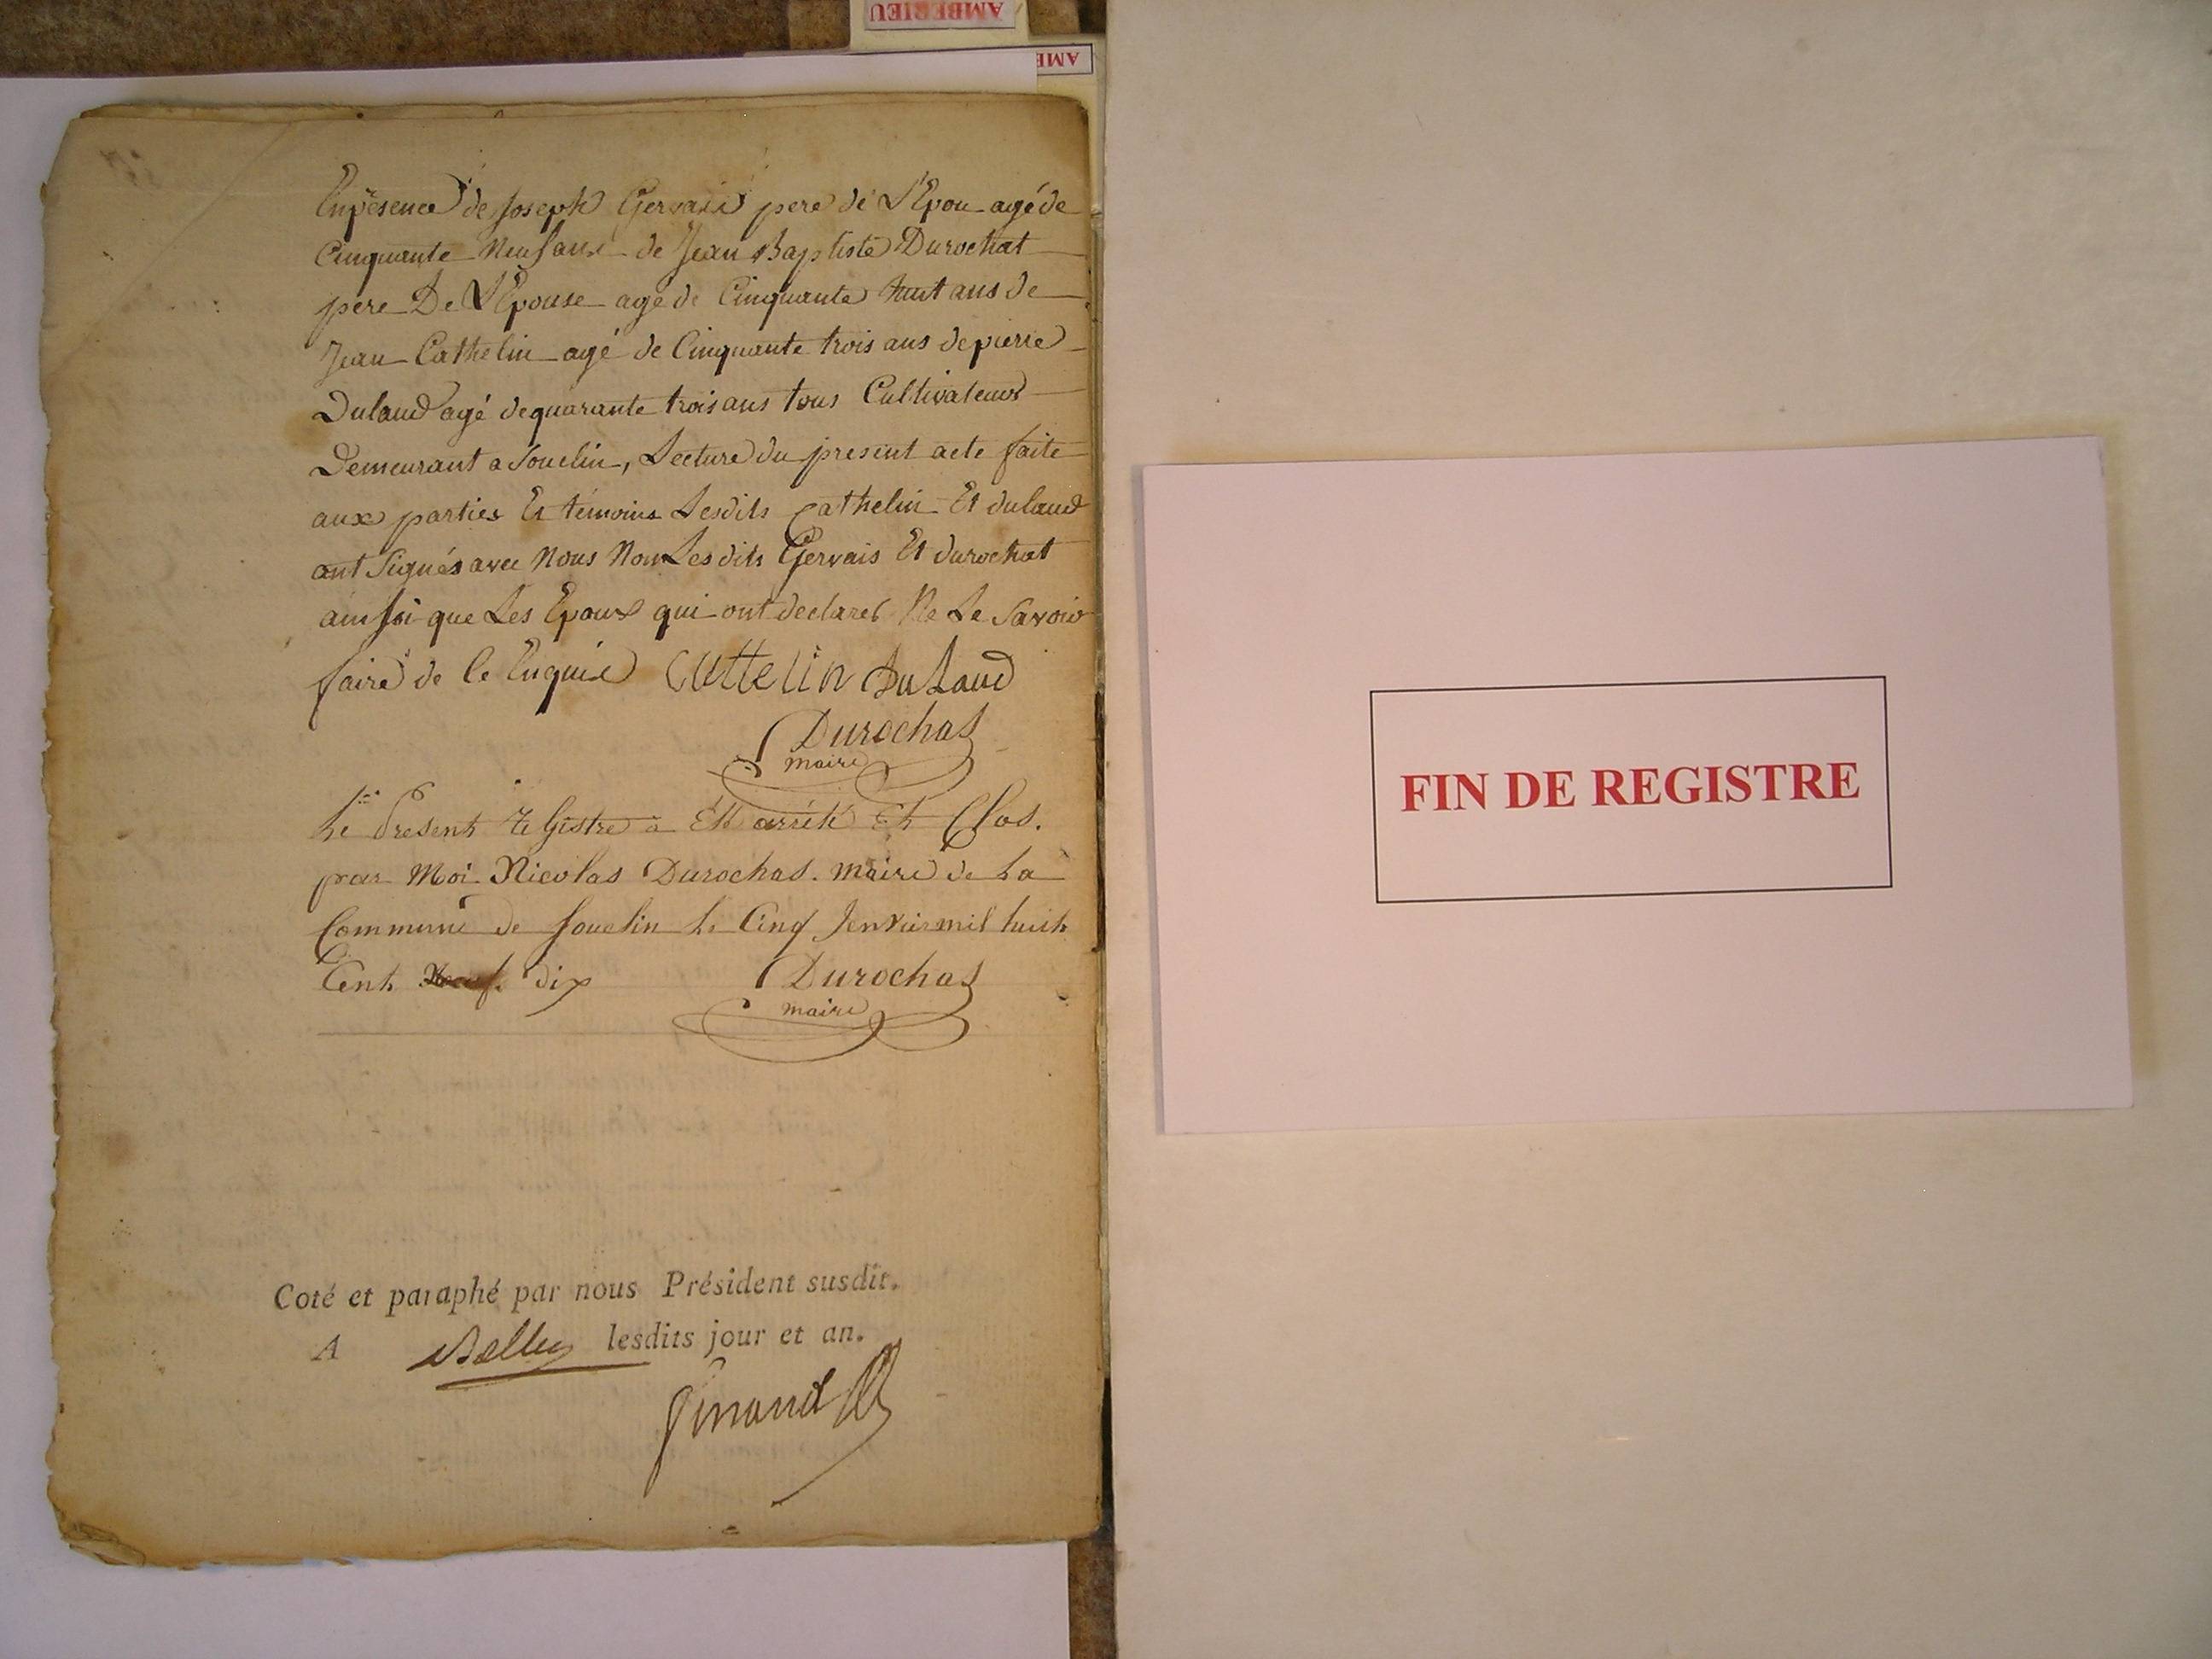 AMBERIEU
AMB
Enpésence de Joseph Gervais pere de L'Epou agé de
Cinquante Neuf ans de Jean Baptiste Durochat
pere De L'Epouse agé de Cinquante huit ans de
Jean Cathelin agé de Cinquante trois ans de pierre
Dulaud agé de quarante trois ans tous Cultivateurs
Demeurant a Souclin, Lecture du present acte faite
aux parties Et témoins Lesdits Cathelin Et dulaud
ont Signés avec Nous Non Lesdits Gervais Et durochat
ainsi que Les Epoux qui ont declarés Ne Le Savoir
faire de Ce Enquis Cuttelin du Laud
Durochas
maire
Le Present Registre a Eté arrété Et Clos.
par Moi Nicolas Durochas. maire de La
Commune de Souclin Le Cinq Jenvier mil huit
Cent dix Durochas
maire
Coté et paraphé par nous Président susdit.
A Belley lesdits jour et an.
FIN DE REGISTRE